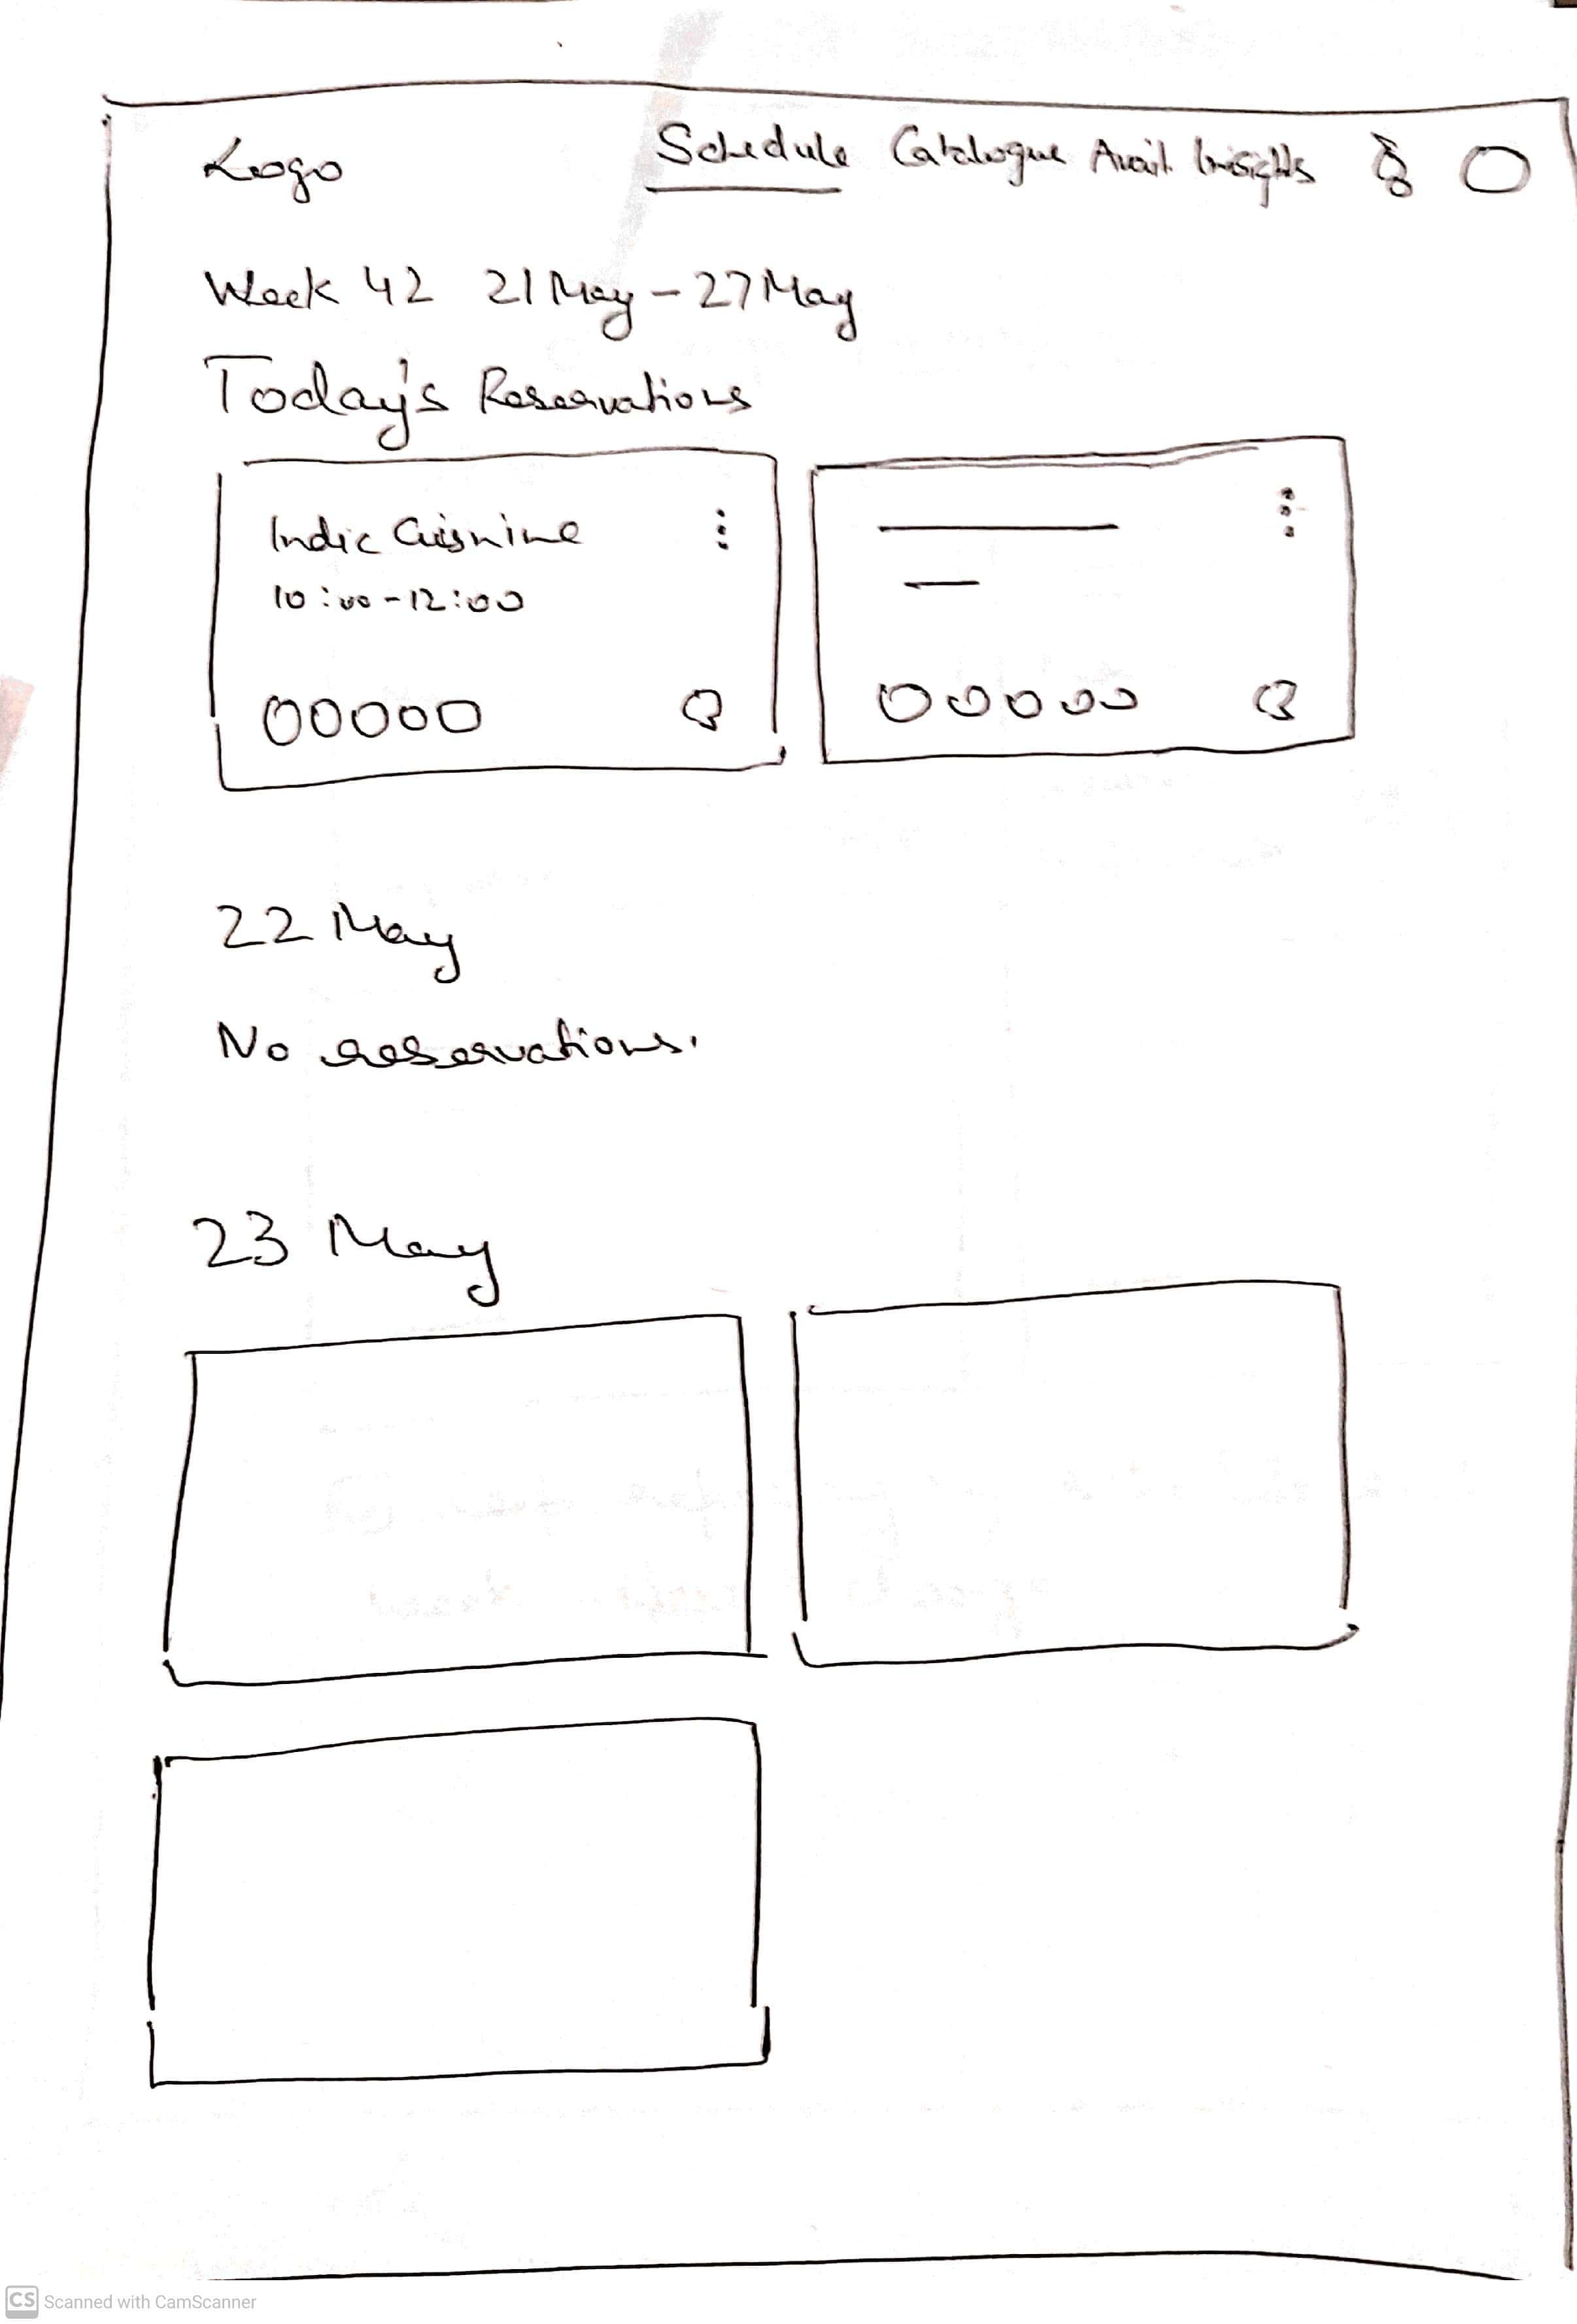 Logo Schedule Catalogue Avail. Insights
Week 42 21 May - 27 May
Today's Reservations
Indic Cuisnine
10:00-12:00
22 May
No reservations.
23 May
CS Scanned with CamScanner